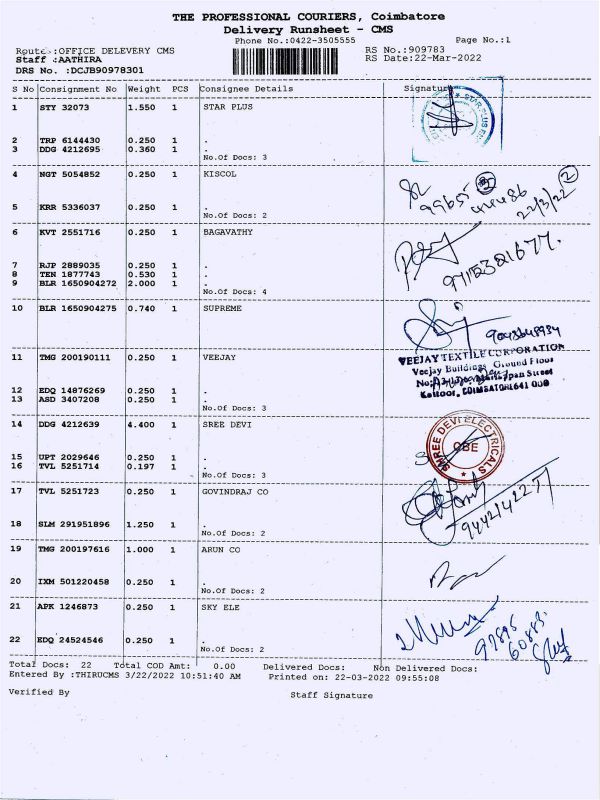 THE PROFESSIONAL COURIERS, Coimbatore
Delivery Runsheet - CMS
Phone No.:0422-3505555 Page No.:1
Route :OFFICE DELEVERY CMS RS No.:909783
Staff :AATHIRA RS Date:22-Mar-2022
DRS No. :DCJB90978301
S No Consignment No Weight PCS Consignee Details Signature
1 STY 32073 1.550 1 STAR PLUS
2 TRP 6144430 0.250 1 .
3 DDG 4212695 0.360 1 .
No.Of Docs: 3
4 NGT 5054852 0.250 1 KISCOL
22/3/22
5 KRR 5336037 0.250 1 .
No.Of Docs: 2
6 KVT 2551716 0.250 1 BAGAVATHY
9715381677.
7 RJP 2889035 0.250 1 .
8 TEN 1877743 0.530 1 .
9 BLR 1650904272 2.000 1 .
No.Of Docs: 4
10 BLR 1650904275 0.740 1 SUPREME
11 TMG 200190111 0.250 1 VEEJAY
VEEJAY TEXTILE CORPORATION
Veejay Buildings, Ground Floor
Street
Kattoor, COIMBATORE 641 009
12 EDQ 14876269 0.250 1 .
13 ASD 3407208 0.250 1 .
No.Of Docs: 3
14 DDG 4212639 4.400 1 SREE DEVI
SHREE DEVI ELECTRICALS
CBE
15 UPT 2029646 0.250 1 .
16 TVL 5251714 0.197 1 .
No.Of Docs: 3
17 TVL 5251723 0.250 1 GOVINDRAJ CO
9442142271
18 SLM 291951896 1.250 1 .
No.Of Docs: 2
19 TMG 200197616 1.000 1 ARUN CO
20 IXM 501220458 0.250 1 .
No.Of Docs: 2
21 APK 1246873 0.250 1 SKY ELE
97895
60883
22 EDQ 24524546 0.250 1 .
No.Of Docs: 2
Total Docs: 22 Total COD Amt: 0.00 Delivered Docs: Non Delivered Docs:
Entered By :THIRUCMS 3/22/2022 10:51:40 AM Printed on: 22-03-2022 09:55:08
Verified By Staff Signature